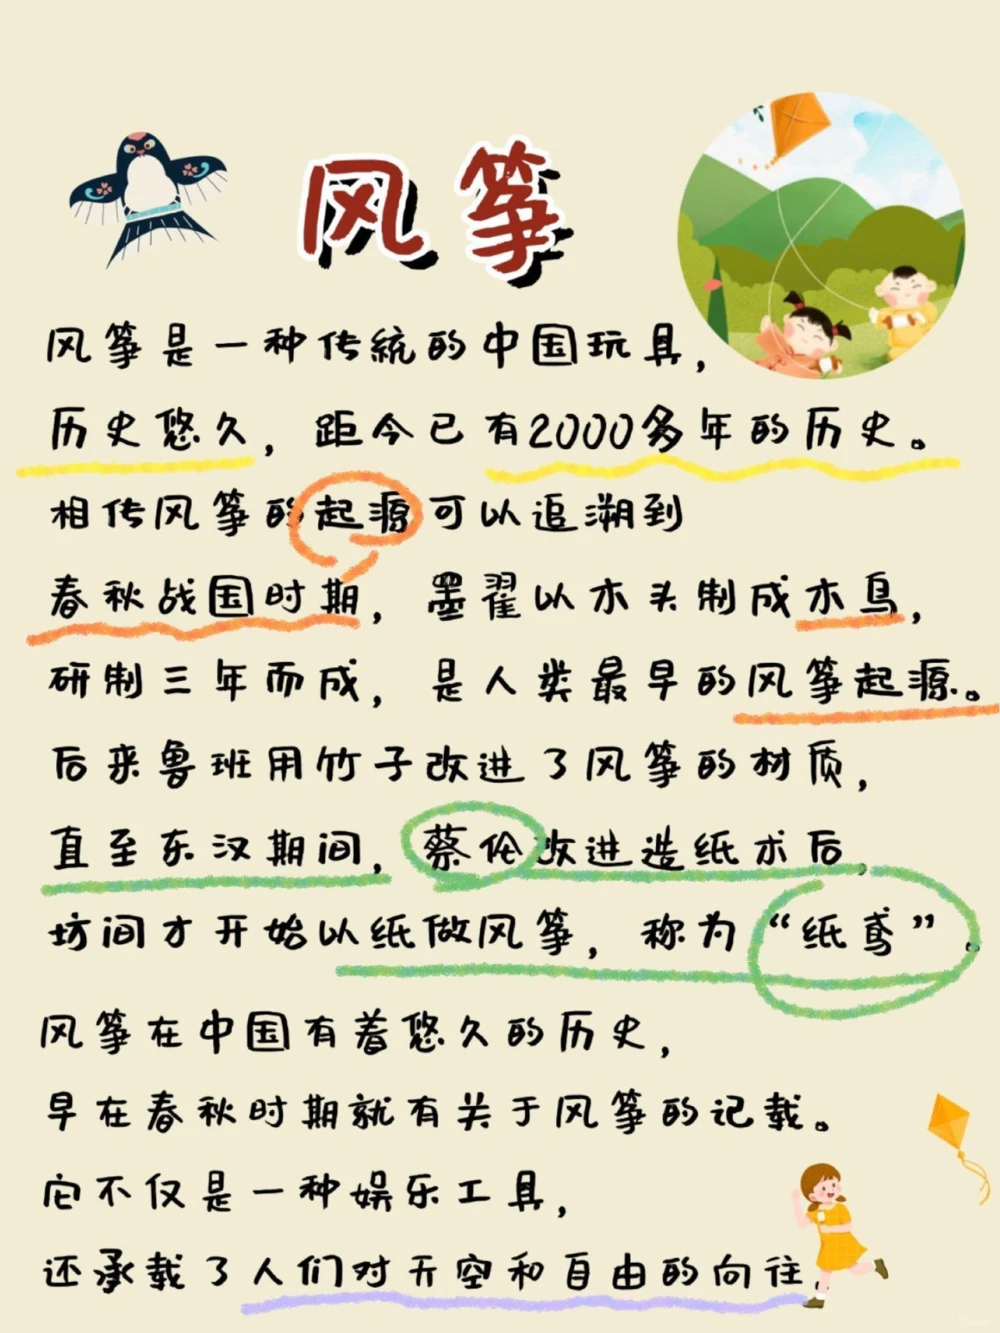 风筝
风筝是一种传统的中国玩具，
历史悠久，距今已有2000多年的历史。
相传风筝的起源可以追溯到
春秋战国时期，墨翟以木头制成木鸟，
研制三年而成，是人类最早的风筝起源。
后来鲁班用竹子改进了风筝的材质，
直至东汉期间，蔡伦改进造纸术后，
坊间才开始以纸做风筝，称为“纸鸢”。
风筝在中国有着悠久的历史，
早在春秋时期就有关于风筝的记载。
它不仅是一种娱乐工具，
还承载了人们对天空和自由的向往。